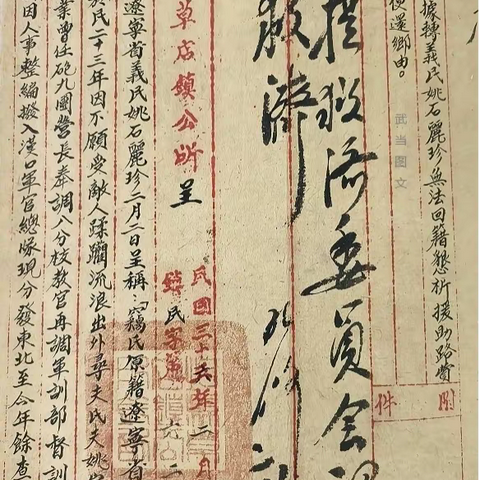 據轉義民姚石麗珍無法回籍懇祈援助路費
便還鄉由。
附件
救濟委員会
救濟
草店鎮公所 呈
民國三十五年二月
遼寧省義民姚石麗珍二月二日呈稱：竊民原籍遼寧省
於民二十三年因不願受敵人蹂躪流浪出外尋夫氏夫姚
業曾任砲九團營長奉調八分校教官再調軍訓部督訓
因人事整編撥入漢口軍官總隊現分發東北至今年餘查
武当图文